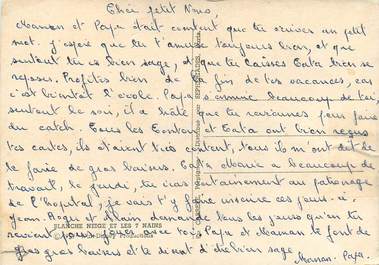 Cher petit Nono,
Maman et Papa était content que tu écrives un petit
mot. J'espère que tu t'amuse toujours bien, et que
surtout tu es bien sage, et que tu laisses Tata bien se
reposer. Profites bien de la fin de tes vacances, car
c'est bientôt l'école. Papa s'ennuie beaucoup de toi,
surtout le soir, il a hâte que tu reviennes pour faire
du catch. Tous les Tontons et Tata ont bien reçus
tes cartes, ils étaient très content, tous ils m'ont dit de
te faire de gros baisers. Tata Marie a beaucoup de
travail, le jeudi, tu iras certainement au patronage
de l'hopital, je vais t'y faire inscrire ces jours-ci.
Jean. et Alain demande tous les jours qu'en tu
revient pour jouer avec toi Papa et Maman te font de
gros gros baisers et te sage
Maman - Papa.
BLANCHE NEIGE ET LES 7 NAINS